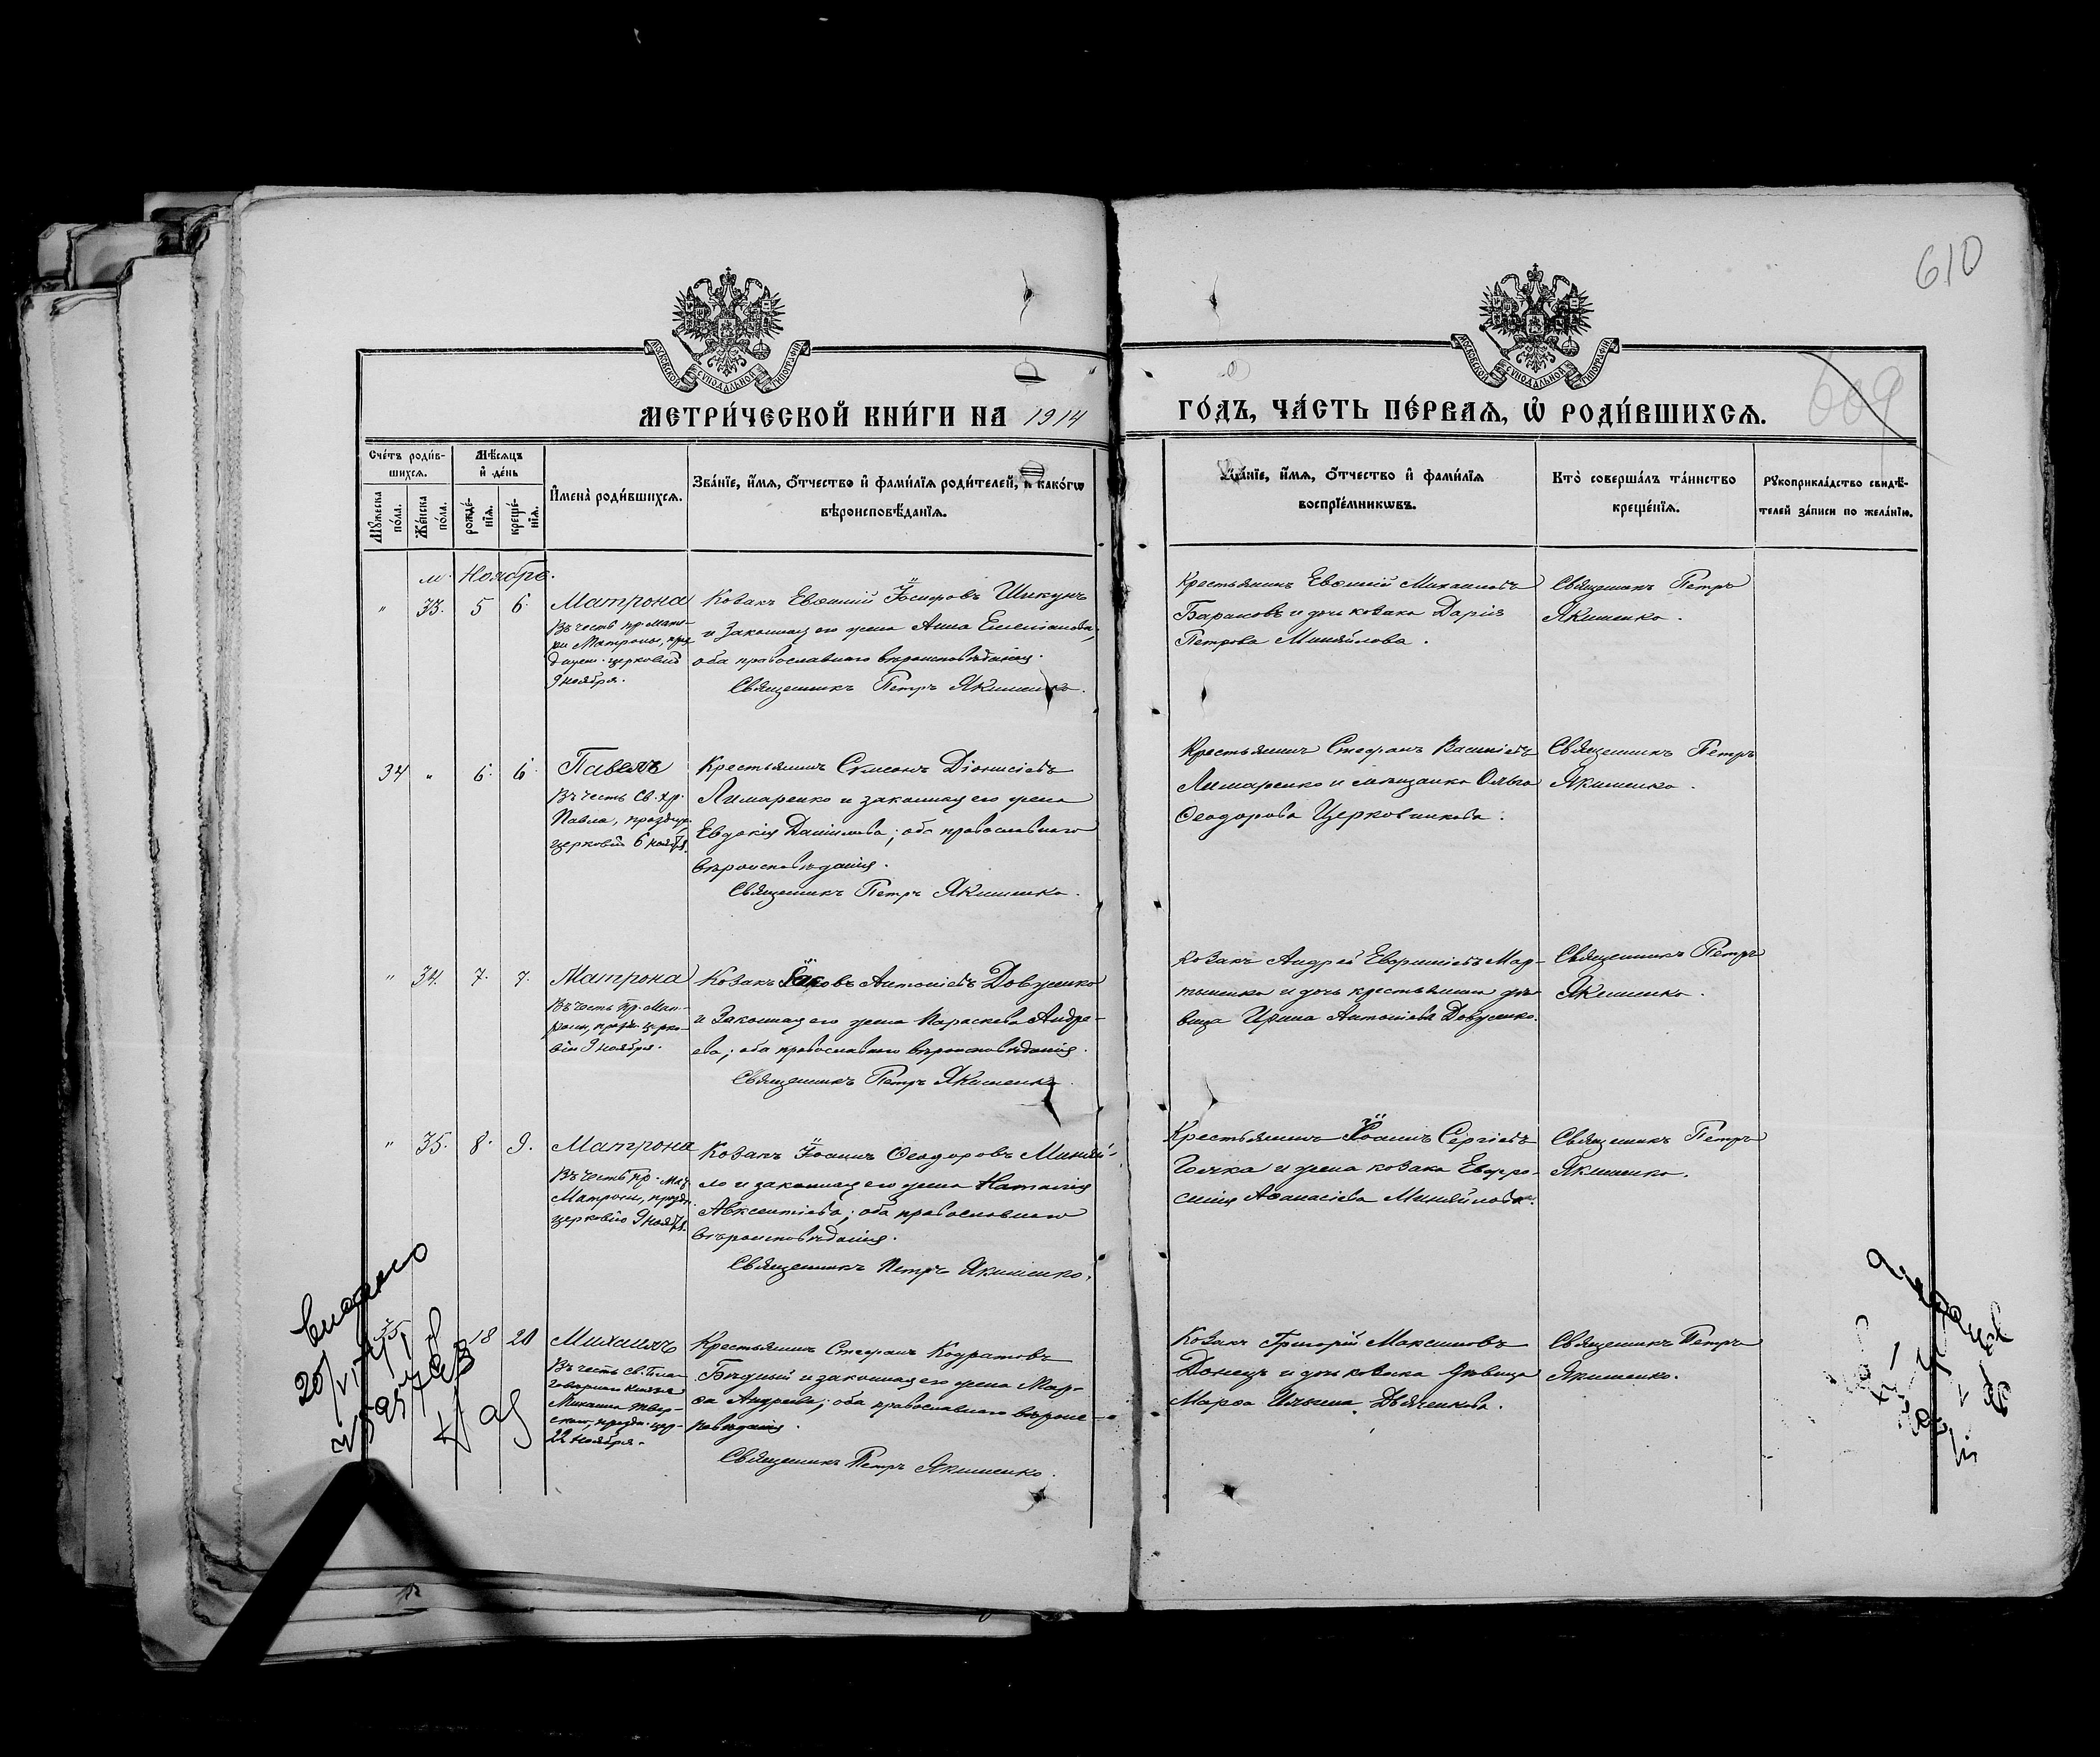 610
609
МОСКОВСКОЙ СѴНОДАЛЬНОЙ ТИПОГРАФІИ
МОСКОВСКОЙ СѴНОДАЛЬНОЙ ТИПОГРАФІИ
МЕТРИ́ЧЕСКОЙ КНИ́ГИ НА 1914 ГО́ДЪ, ЧА́СТЬ ПЕ́РВАѦ, Ѡ҆ РОДИ́ВШИХСѦ.
Сче́тъ роди́в-
шихсѧ.
Мꙋжеска по́ла.
Же́нска по́ла.
Мѣ́сѧцъ
и҆ де́нь
рожде́-
нїѧ.
креще́-
нїѧ.
И҆мена̀ роди́вшихсѧ.
Зва́нїе, и҆́мѧ, ѻ҆́тчество и҆ фами́лїѧ роди́телей, и҆ како́гѡ
вѣроисповѣ́данїѧ.
Зва́нїе, и҆́мѧ, ѻ҆́тчество и҆ фами́лїѧ
воспрїе́мникѡвъ.
Кто̀ соверша́лъ та́инство
креще́нїѧ.
Рꙋкоприкла́дство свидѣ́-
телей за́писи по жела́нїю.
м. Ноябрь.
" 33. 5 6. Матрона
Въ честь пр. Мате-
ри Матроны, праз
9 ноября.
Козакъ Евѳимій Іосифовъ Шикунъ
и законная его жена Анна Емеліанова;
оба православнаго вѣроисповѣданія.
Священникъ Петръ Якименко.
Крестьянинъ Евѳимій Михаиловъ
Барановъ и дочь козака Дарія
Петрова Миняйлова.
Священникъ Петръ
Якименко.
34 " 6. 6. Павелъ
Въ честь Св.
Павла, празднуе.
церковію 6 ноября.
Крестьянинъ Сѵмеонъ Діонисіевъ
Лимаренко и законная его жена
Евдокія Даніилова; оба православнаго
вѣроисповѣданія.
Священникъ Петръ Якименко.
Крестьянинъ Стефанъ Василіевъ
Лимаренко и мѣщанка Ольга
Ѳеодорова Церковникова.
Священникъ Петръ
Якименко.
" 34. 7. 7. Матрона
Въ честь Пр. Мат-
роны, празд. церко-
вію 9 ноября.
Козакъ Іаковъ Антоніевъ Довженко
и законная его жена Параскева Андре-
ева; оба православнаго вѣроисповѣданія.
Священникъ Петръ Якименко.
Козакъ Андрей Евфиміевъ Мар-
тыненко и дочь крестьянина дѣ-
вица Ирина Антоніева Довженко.
Священникъ Петръ
Якименко.
" 35. 8. 9. Матрона
Въ честь пр. Мат.
Матроны, праздн.
церковію 9 ноября.
Козакъ Іоаннъ Ѳеодоровъ Миняй-
ло и законная его жена Наталія
Авксентіева; оба православнаго
вѣроисповѣданія.
Священникъ Петръ Якименко.
Крестьянинъ Іоаннъ Сергіевъ
Гочка и жена козака Евфро-
синія Аѳанасіева Миняйлова.
Священникъ Петръ
Якименко.
35 18 20 Михаилъ
Въ честь Св. Бла-
говѣрнаго Князя
Михаила Твер-
скаго, праздн. цер-
22 ноября.
Крестьянинъ Стефанъ Кодратовъ
Бѣдный и законная его жена Мар-
ѳа Андреева; оба православнаго вѣроис-
повѣданія.
Священникъ Петръ Якименко.
Козакъ Григорій Максимовъ
Донецъ и дочь козака дѣвица
Марѳа Ильина Дьяченкова.
Священникъ Петръ
Якименко.
Видано